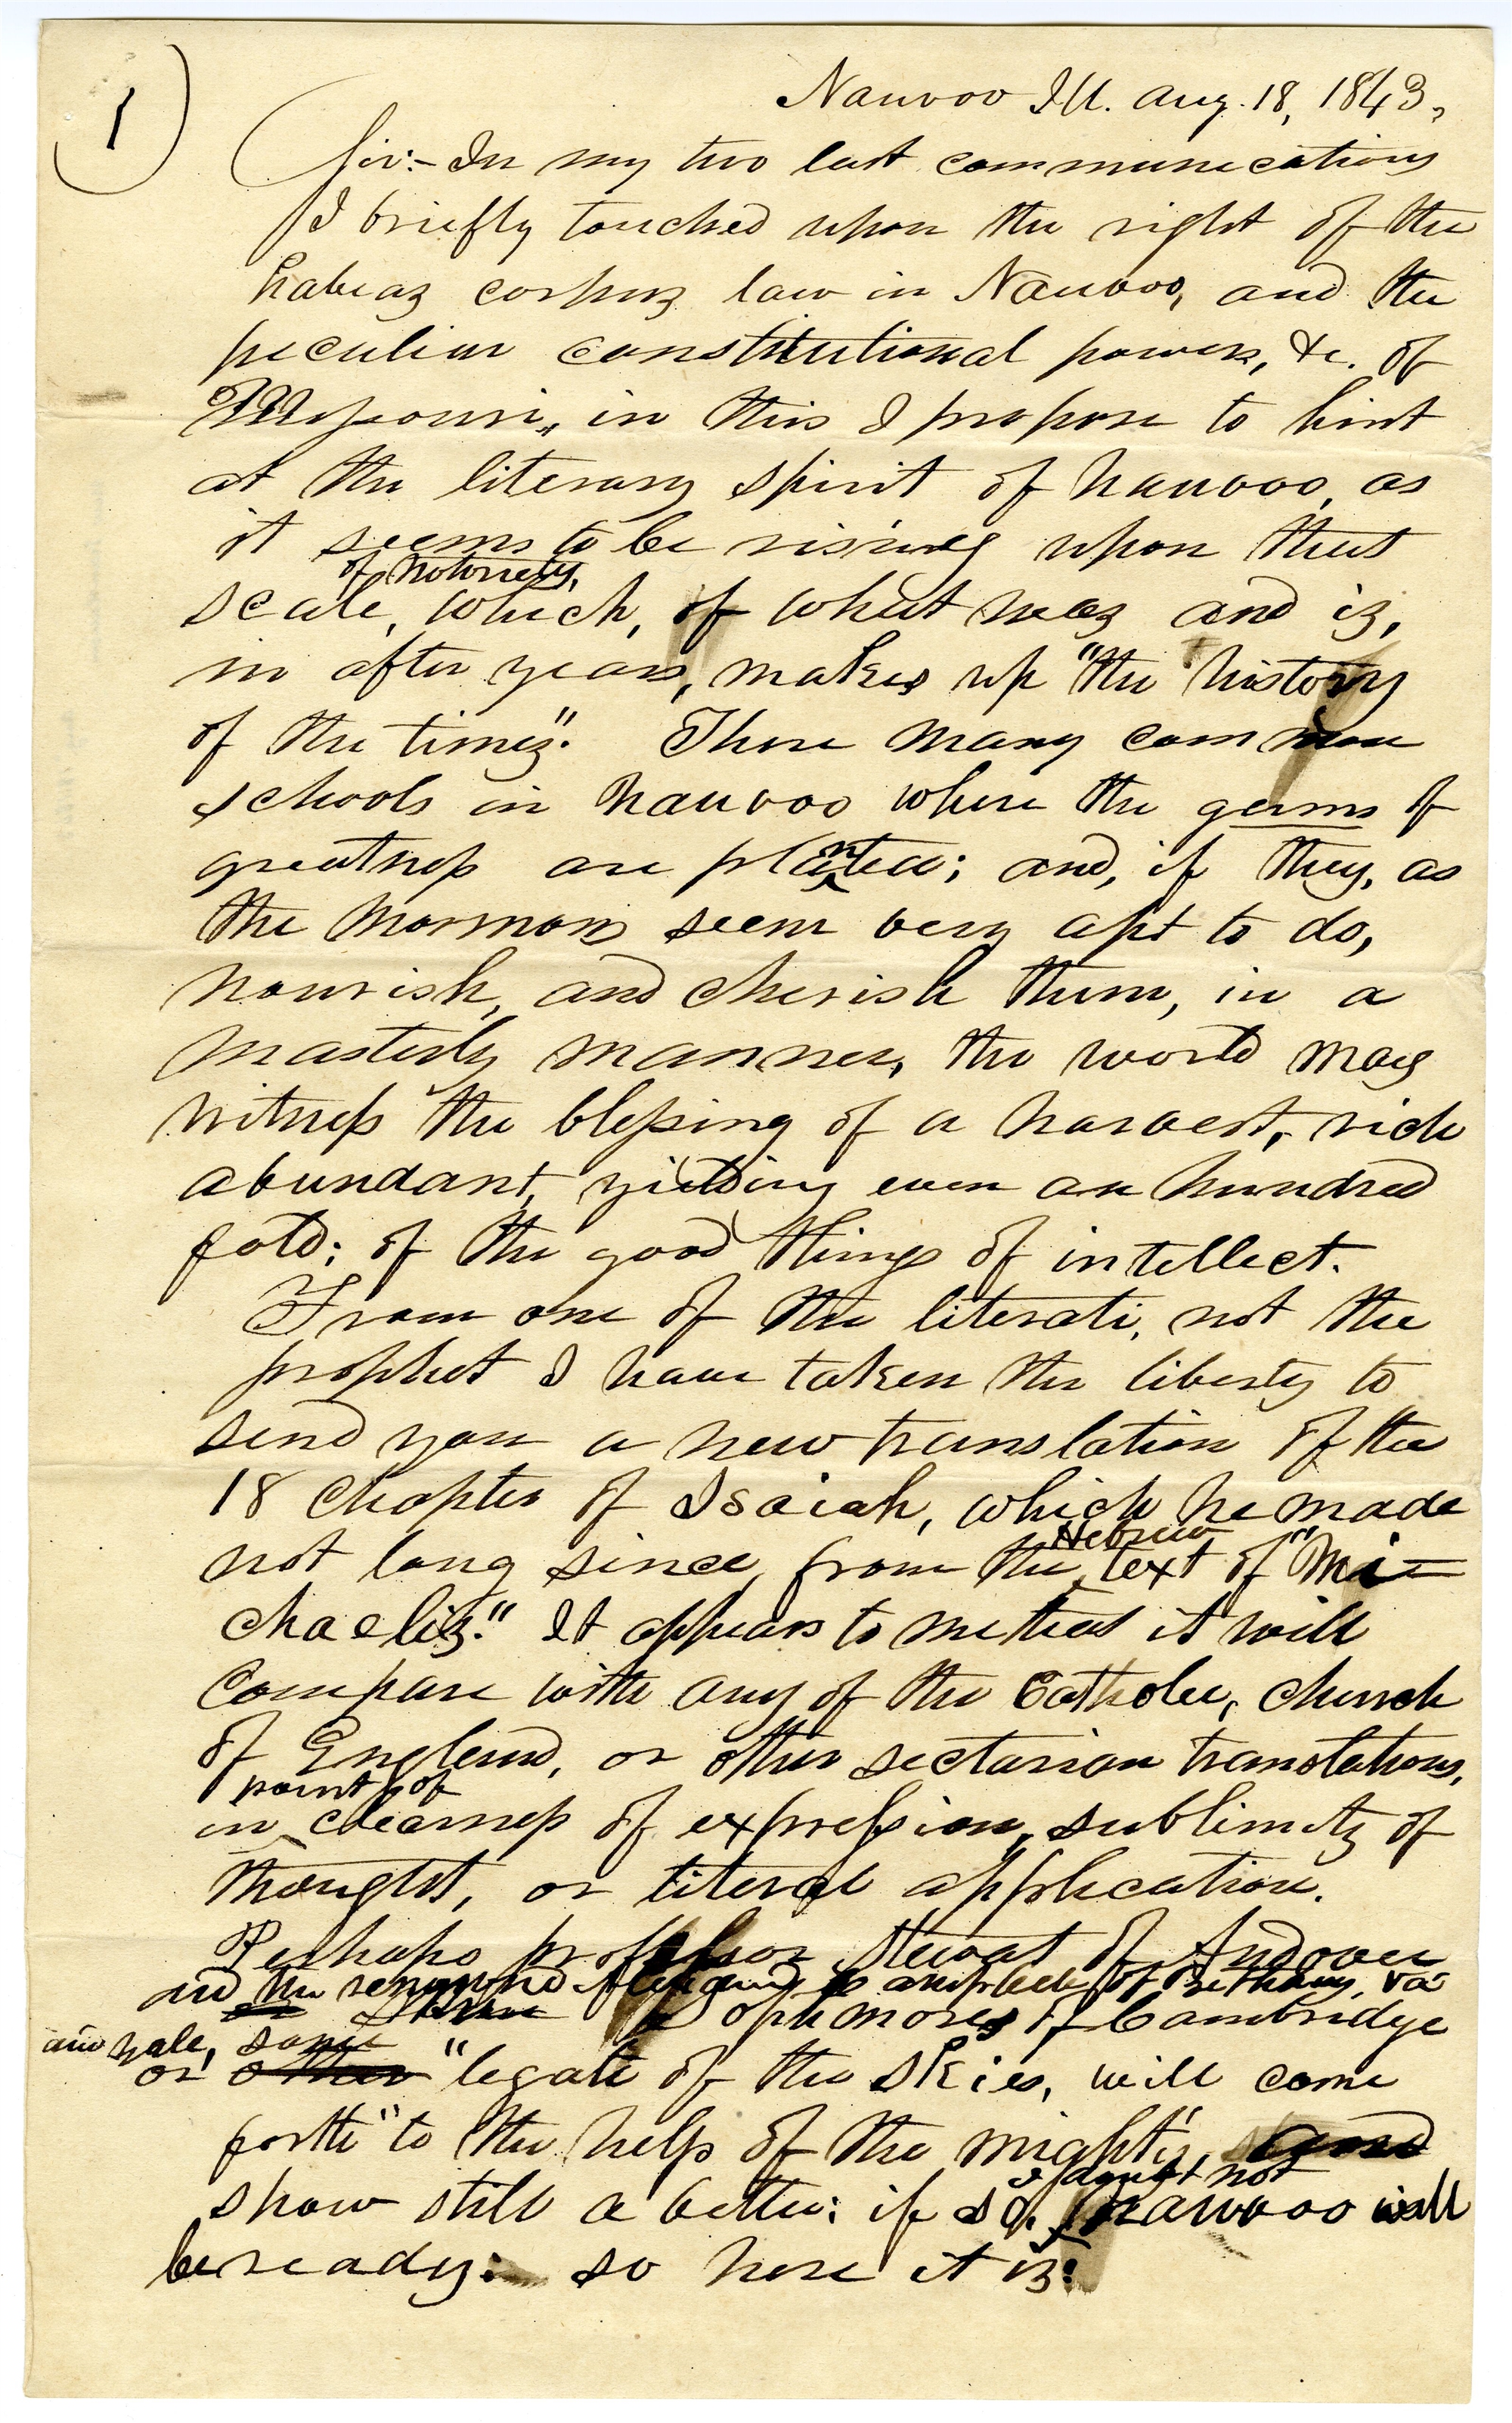 1
Nauvoo Ill. Aug. 18, 1843,
Sir:- In my two last communications
I briefly touched upon the right of the
habeaz corpuz law in Nauvoo, and the
peculiar constitutional powers, &c. of
Missouri, in this I propose to hint
at the literary spirit of Nauvoo, as
it seems to be rising upon that
of notoriety,
scale, which, of what waz and iz,
in after years, makes up "the history
of the timez". There many common
schools in Nauvoo where the germs of
greatness are planted; and, if they, as
the Mormons seem very apt to do,
nourish, and cherish them, in a
masterly manner, the world may
witness the blessing of a harvest, rich
abundant, yielding even an hundred
fold; of the good things of intellect.
From one of the literati, not the
prophet I have taken the liberty to
send you a new translation of the
18 chapter of Isaiah, which he made
Hebrew
not long since, from the text of "Mi=
chaeliz." It appears to me that it will
compare with any of the Catholic, church
of England, or other sectarian translations,
point of
in clearness of expression, sublimity of
thought, or literal application.
Perhaps professor Stewart of Andover
and the renowned Alexander Campbell of Bethany, Va
Sophmores of Cambridge
and Yale, some
or other "legate of the skies, will come
forth" to the help of the mighty, and
I doubt not
show still a better: if so, Nauvoo will
be ready: so here it iz: